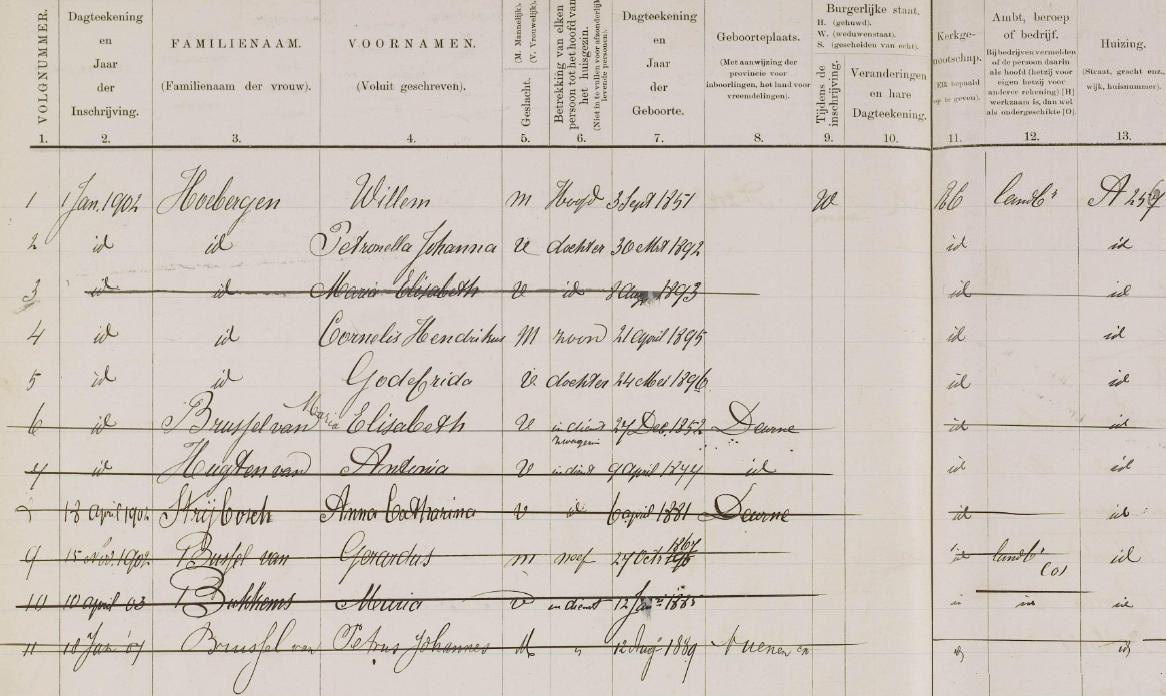 VOLGNUMMER.
Dagteekening en Jaar der Inschrijving.
FAMILIENAAM.
(Familienaam der vrouw).
VOORNAMEN.
(Voluit geschreven).
Geslacht. (M. Mannelijk). (V. Vrouwelijk).
Betrekking van elken persoon tot het hoofd van het huisgezin.
(Niet in te vullen voor afzonderlijk levende personen).
Dagteekening en Jaar der Geboorte.
Geboorteplaats.
(Met aanwijzing der provincie voor inboorlingen, het land voor vreemdelingen).
Burgerlijke staat.
H. (gehuwd).
W. (weduwenstaat).
S. (gescheiden van echt).
Tijdens de inschrijving.
Veranderingen en hare Dagteekening.
Kerkge-
nootschap.
(Elk bepaald op te geven).
Ambt, beroep of bedrijf.
Bij bedrijven vermelden of de persoon daarin als hoofd (hetzij voor eigen hetzij voor anderer rekening) [H] werkzaam is, dan wel als ondergeschikte [O].
Huizing.
(Straat, gracht enz., wijk, huisnummer).
1. 2. 3. 4. 5. 6. 7. 8. 9. 10. 11. 12. 13.
1 1 Jan. 1902 Hoebergen Willem m Hoofd 3 Sept 1851 W RC landbr A 25
2 id id Petronella Johanna V dochter 30 1892 id id
3 id id Maria Elisabeth V id 8 Aug 1893 id id
4 id id Cornelis Hendrikus M zoon 21 april 1895 id id
5 id id Godefrida V dochter 24 Mei 1896 id id
6 id Brussel van Maria Elisabeth V in dienst 27 Dec. 1852 Deurne id id
zwagerin
7 id Hugten van Antonia V in dienst 9 april 1877 id id id
18 april 1902 Strijbosch Anna Catharina V id 6 april 1881 Deurne id id
9 15 Nov. 1902 Brussel van Gerardus m neef 27 Oct 1867 id landbr (o) id
10 10 april 03 Bukkems Maria V in dienst 12 1885 id id id
11 10 Jan 07 Brussel van Petrus Johannes M " 12 Aug 1889 Nuenen id id